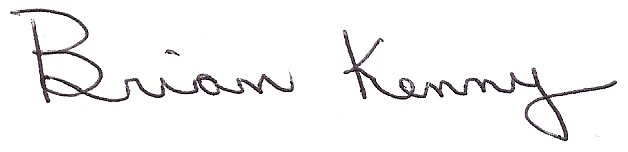 Brian Kenny